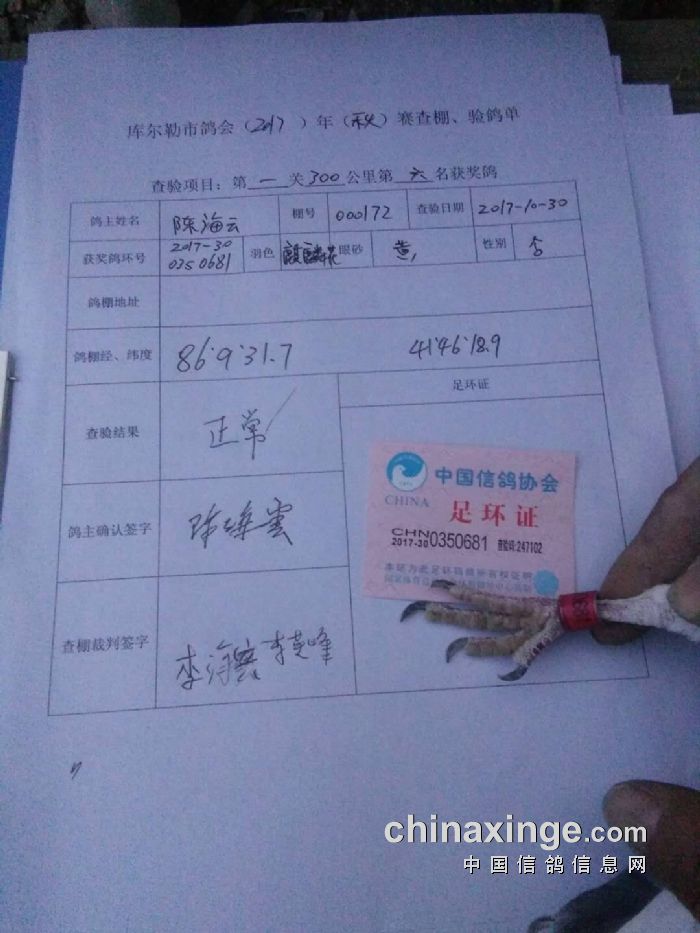 库尔勒市鸽会（2017）年（秋）赛查棚、验鸽单
查验项目：第一关300公里第六名获奖鸽
鸽主姓名 陈海云 棚号 000172 查验日期 2017-10-30
获奖鸽环号 2017-30 0350681 羽色 麒麟花 眼砂 黄 性别
鸽棚地址
鸽棚经、纬度 86°9'31.7 41°46'18.9
查验结果 正常
足环证
鸽主确认签字 陈海云
查棚裁判签字 李海 李英峰
中国信鸽协会
CHINA
足环证
CHN
2017-30 0350681 查验码:247102
chinaxinge.com
中国信鸽信息网